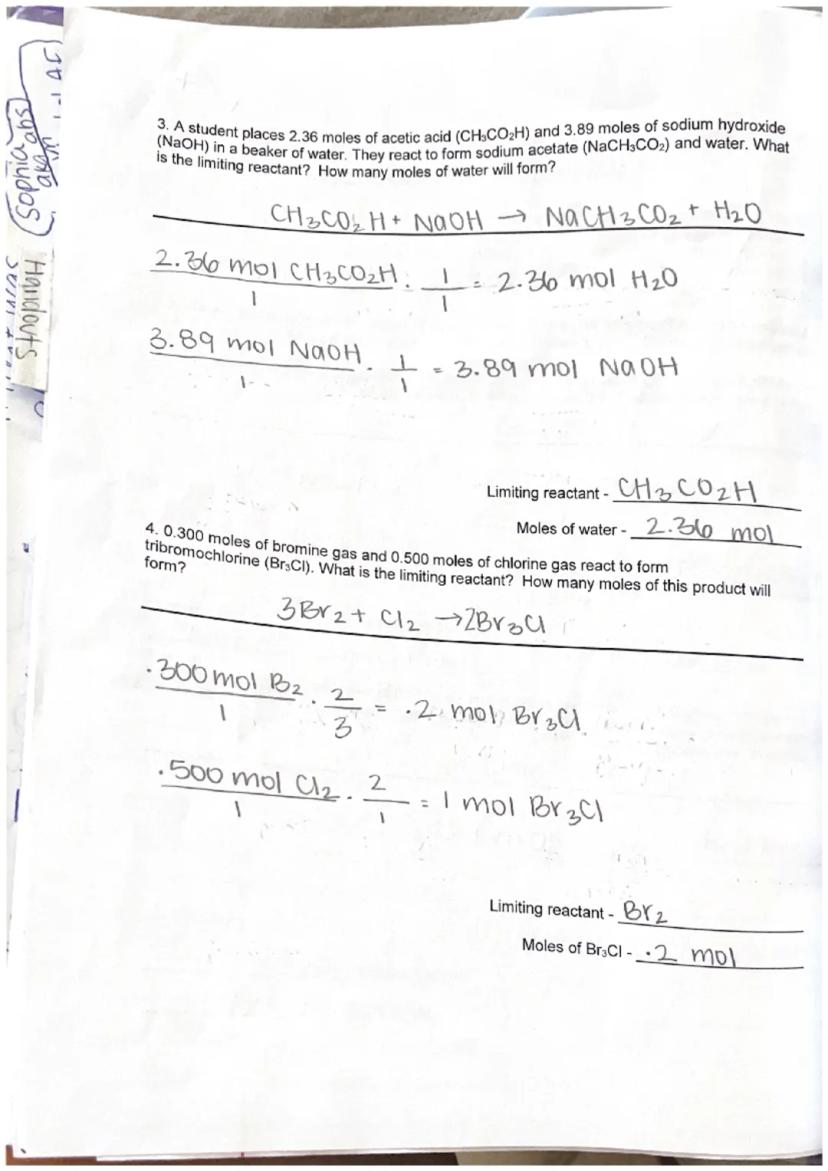 3. A student places 2.36 moles of acetic acid (CH₃CO₂H) and 3.89 moles of sodium hydroxide
(NaOH) in a beaker of water. They react to form sodium acetate (NaCH₃CO₂) and water. What
is the limiting reactant? How many moles of water will form?
CH₃CO₂H + NaOH → NaCH₃CO₂ + H₂O
2.36 mol CH₃CO₂H/1 · 1/1 = 2.36 mol H₂O
3.89 mol NaOH/1 · 1/1 = 3.89 mol NaOH
Limiting reactant - CH₃CO₂H
Moles of water - 2.36 mol
4. 0.300 moles of bromine gas and 0.500 moles of chlorine gas react to form
tribromochlorine (Br₃Cl). What is the limiting reactant? How many moles of this product will
form?
3Br₂ + Cl₂ → 2Br₃Cl
.300 mol B₂/1 · 2/3 = .2 mol Br₃Cl
.500 mol Cl₂/1 · 2/1 = 1 mol Br₃Cl
Limiting reactant - Br₂
Moles of Br₃Cl - .2 mol
Sophia
abs
Haridou